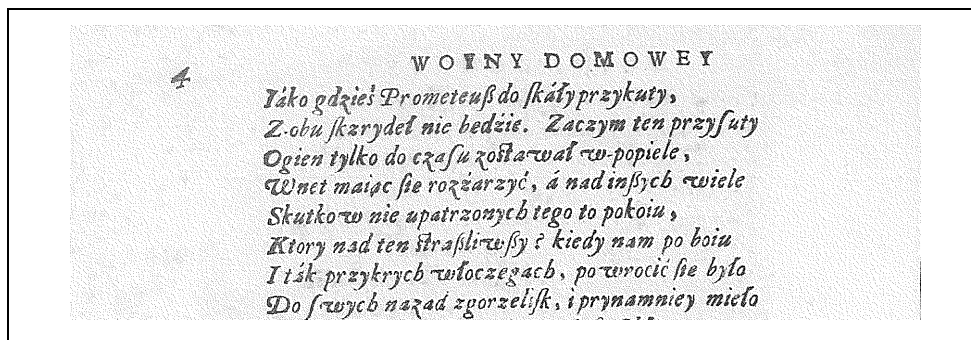 4
WOYNY DOMOWEY
Iáko gdzieś Prometeuß do ſkáły przykuty,
Z obu ſkrzydeł nic będzie. Zaczym ten przyſuty
Ogien tylko do czaſu zoſtawał w-popiele,
Wnet maiąc ſie rozżarzyć, á nad inßych wiele
Skutkow nie upatrzonych tego to pokoiu,
Ktory nad ten ſtraßliwßy? kiedy nam po boiu
I ták przykrych włoczęgach, powrocić ſie było
Do ſwych nazad zgorzeliſk, i prynamniey mieło